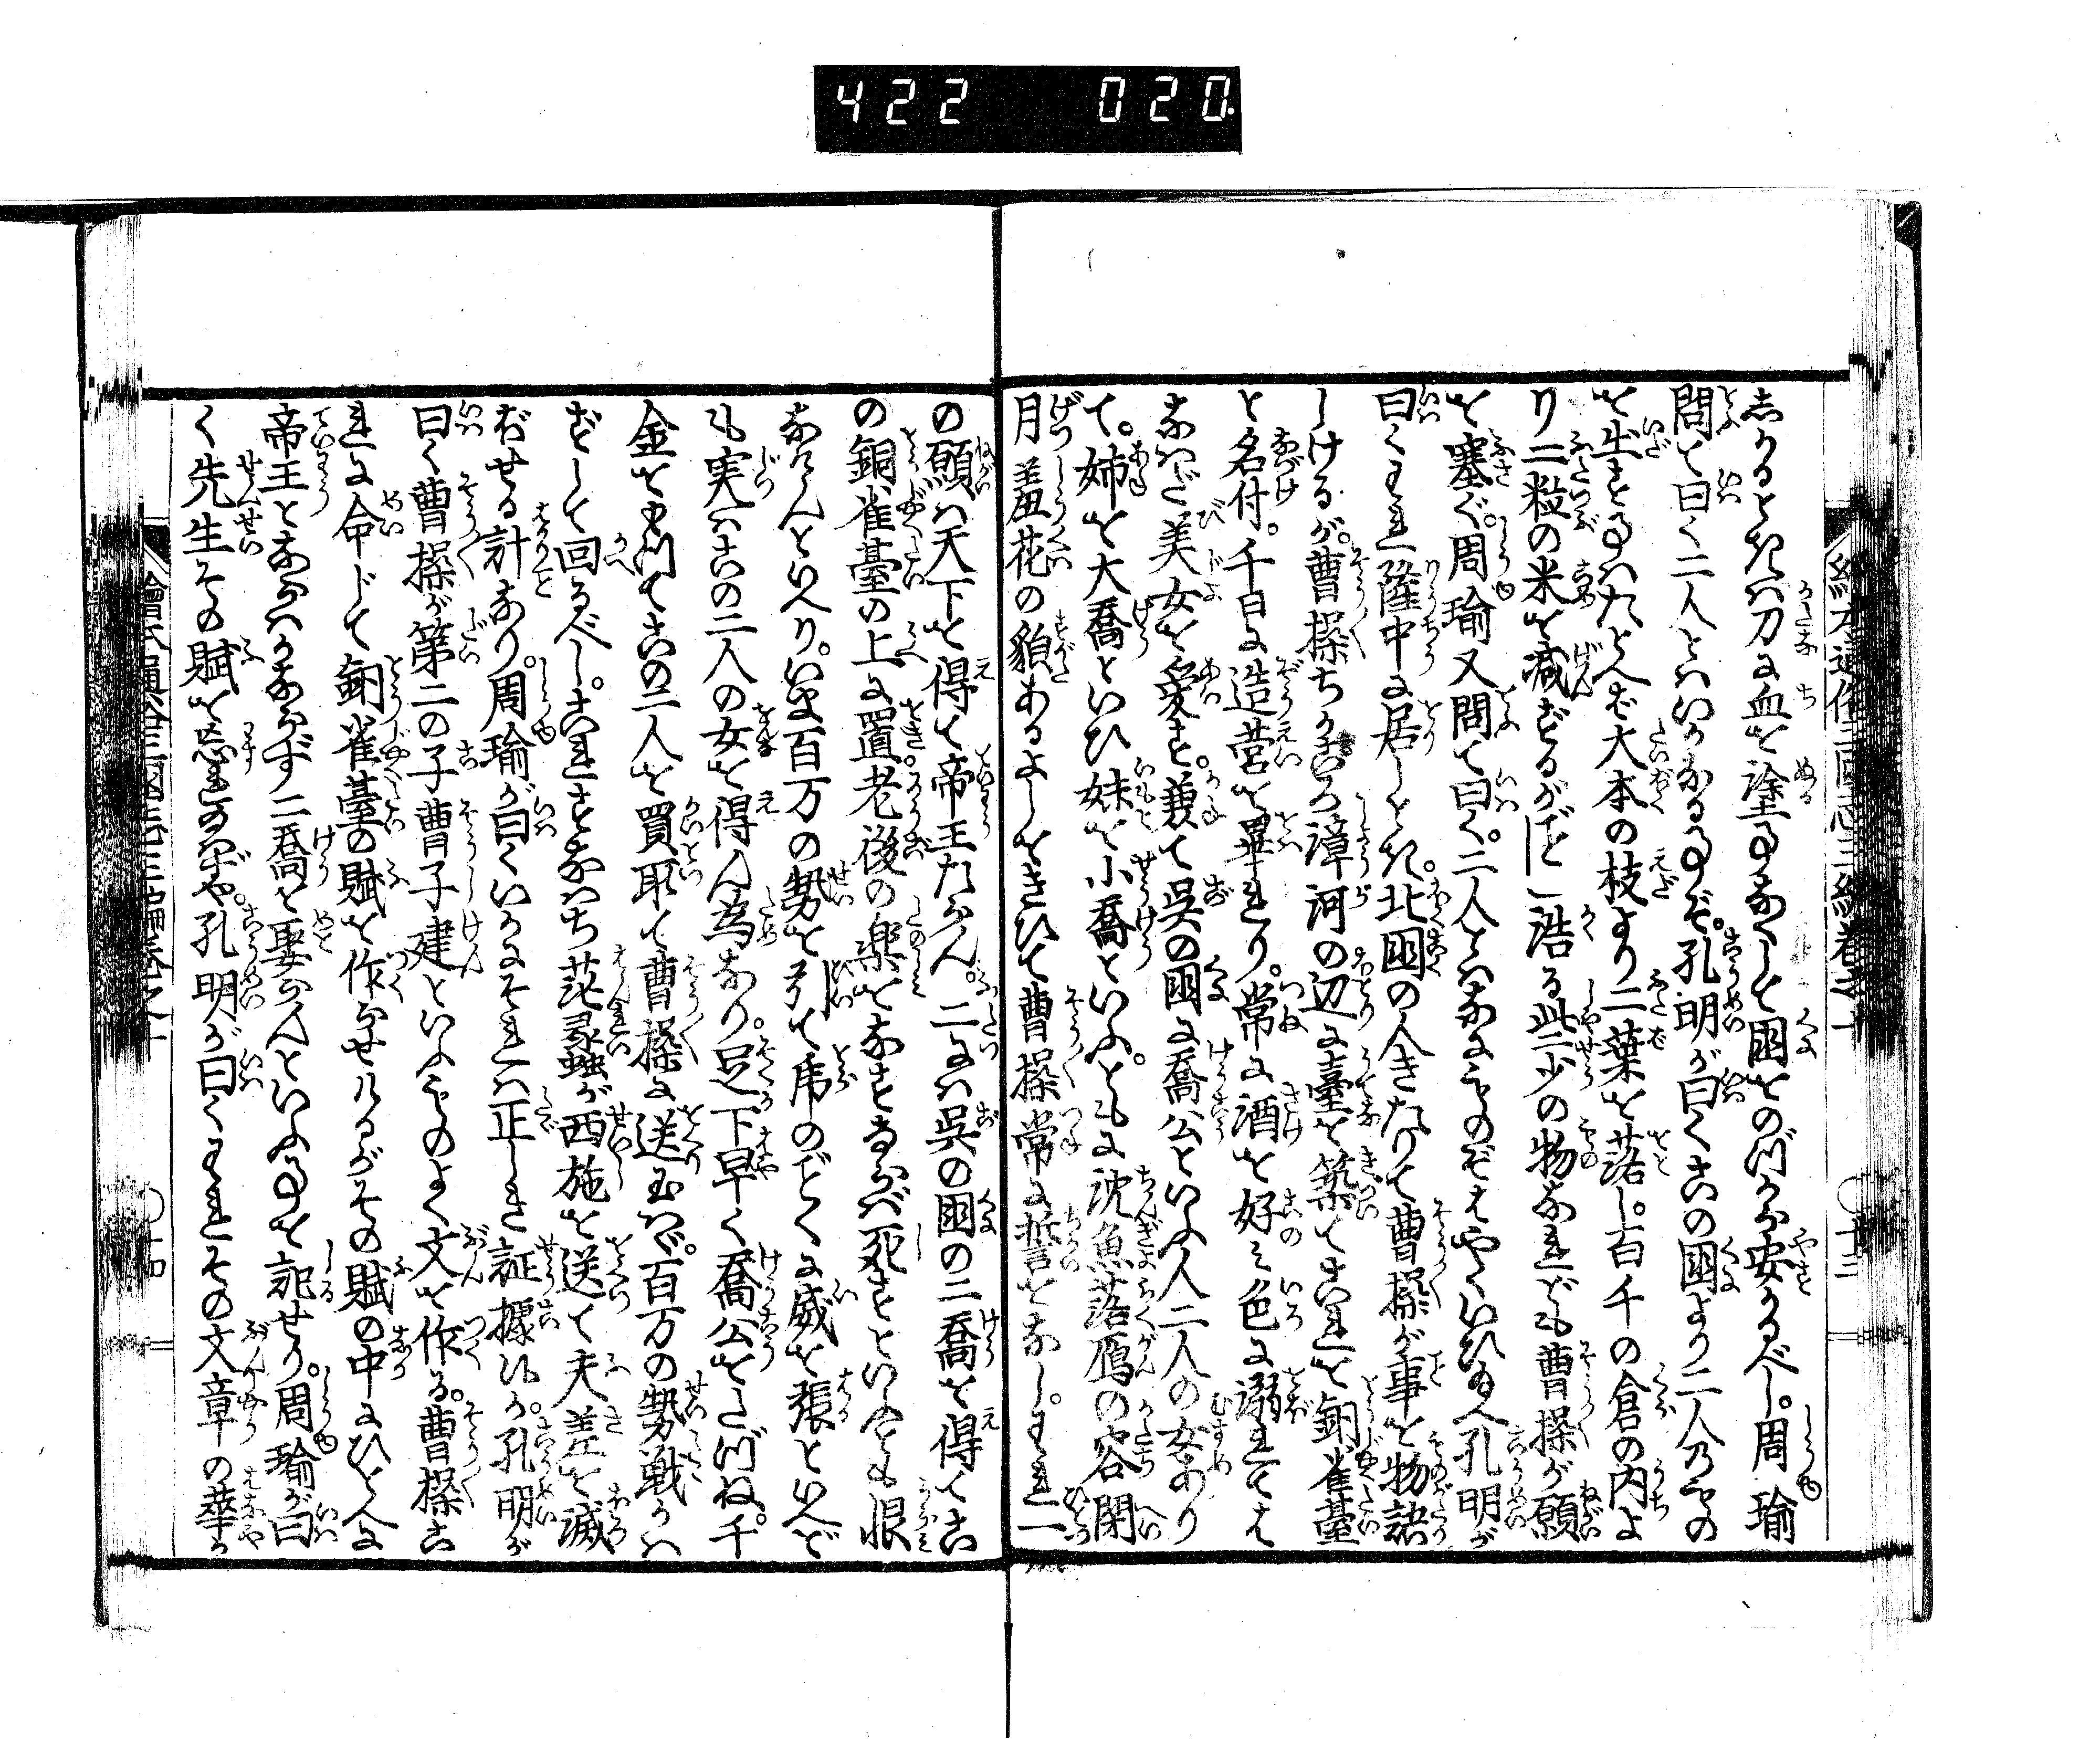 422 020
しかるときは刀に血を塗る事なくして国をのづから安かるべし。周瑜
問て曰く二人とはいかなる事ぞ。孔明が曰くこの国より二人のもの
を出すことはたとへば大木の枝より二葉を落し。百千の倉の内よ
り二粒の米を減ずるがごとし
を塞ぐ。周瑜又問て曰く。二人とはなにものぞはやくいひ給へ孔明が
曰くわれ隆中に居しとき。北国の人きたりて曹操が事を物語
しけるが。曹操ちかごろ漳河の辺に臺を築てこれを銅雀臺
と名付。千日に造営を畢れり。常に酒を好み色に溺れては
なはだ美女を愛す。兼て呉の国に喬公といふ人二人の女あり
て。姉を大喬といひ妹を小喬といふ。ともに沈魚落鴈の容閉
月羞花の貌あるよしをきひて曹操常に誓をなし。われ一
の願は天下を得て帝王たらん。二には呉の国の二喬を得てこ
の銅雀臺の上に置老後の楽をなすならば死すといふとも恨
なけんといへり。いま百万の勢を引て虎のごとくに威を張といへど
も実はこの二人の女を得ん為なり。足下早く喬公をたづね。千
金をもつてこの二人を買取て曹操に送玉はゞ。百万の勢戦かは
ずして回るべし。これすなはち范蠡が西施を送て夫差を滅
ぼせる計なり。周瑜が曰くいかにそれは正しき証據候か。孔明が
曰く曹操が第二の子曹子建といふものよく文を作る。曹操こ
れに命じて銅雀臺の賦を作らせけるがその賦の中にひと人に
帝王とならばかならず二喬を娶らんといふ事を記せり。周瑜が曰
く先生その賦を忘れ給ずや。孔明が曰くわれその文章の華か